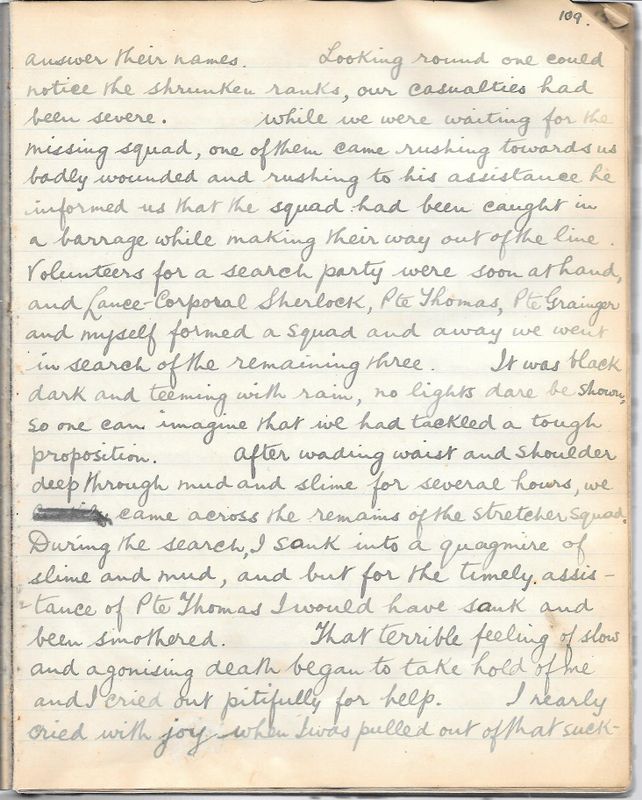 109.
answer their names. Looking round one could
notice the shrunken ranks, our casualties had
been severe. While we were waiting for the
missing squad, one of them came rushing towards us
badly wounded and rushing to his assistance he
informed us that the squad had been caught in
a barrage while making their way out of the line.
Volunteers for a search party were soon at hand,
and Lance-Corporal Sherlock, Pte Thomas, Pte Grainger
and myself formed a squad and away we went
in search of the remaining three. It was black
dark and teeming with rain, no lights dare be shown,
so one can imagine that we had tackled a tough
proposition. After wading waist and shoulder
deep through mud and slime for several hours, we
came across the remains of the stretcher squad.
During the search, I sank into a quagmire of
slime and mud, and but for the timely assis-
-tance of Pte Thomas I would have sank and
been smothered. That terrible feeling of slow
and agonising death began to take hold of me
and I cried out pitifully for help. I nearly
cried with joy when I was pulled out of that suck-